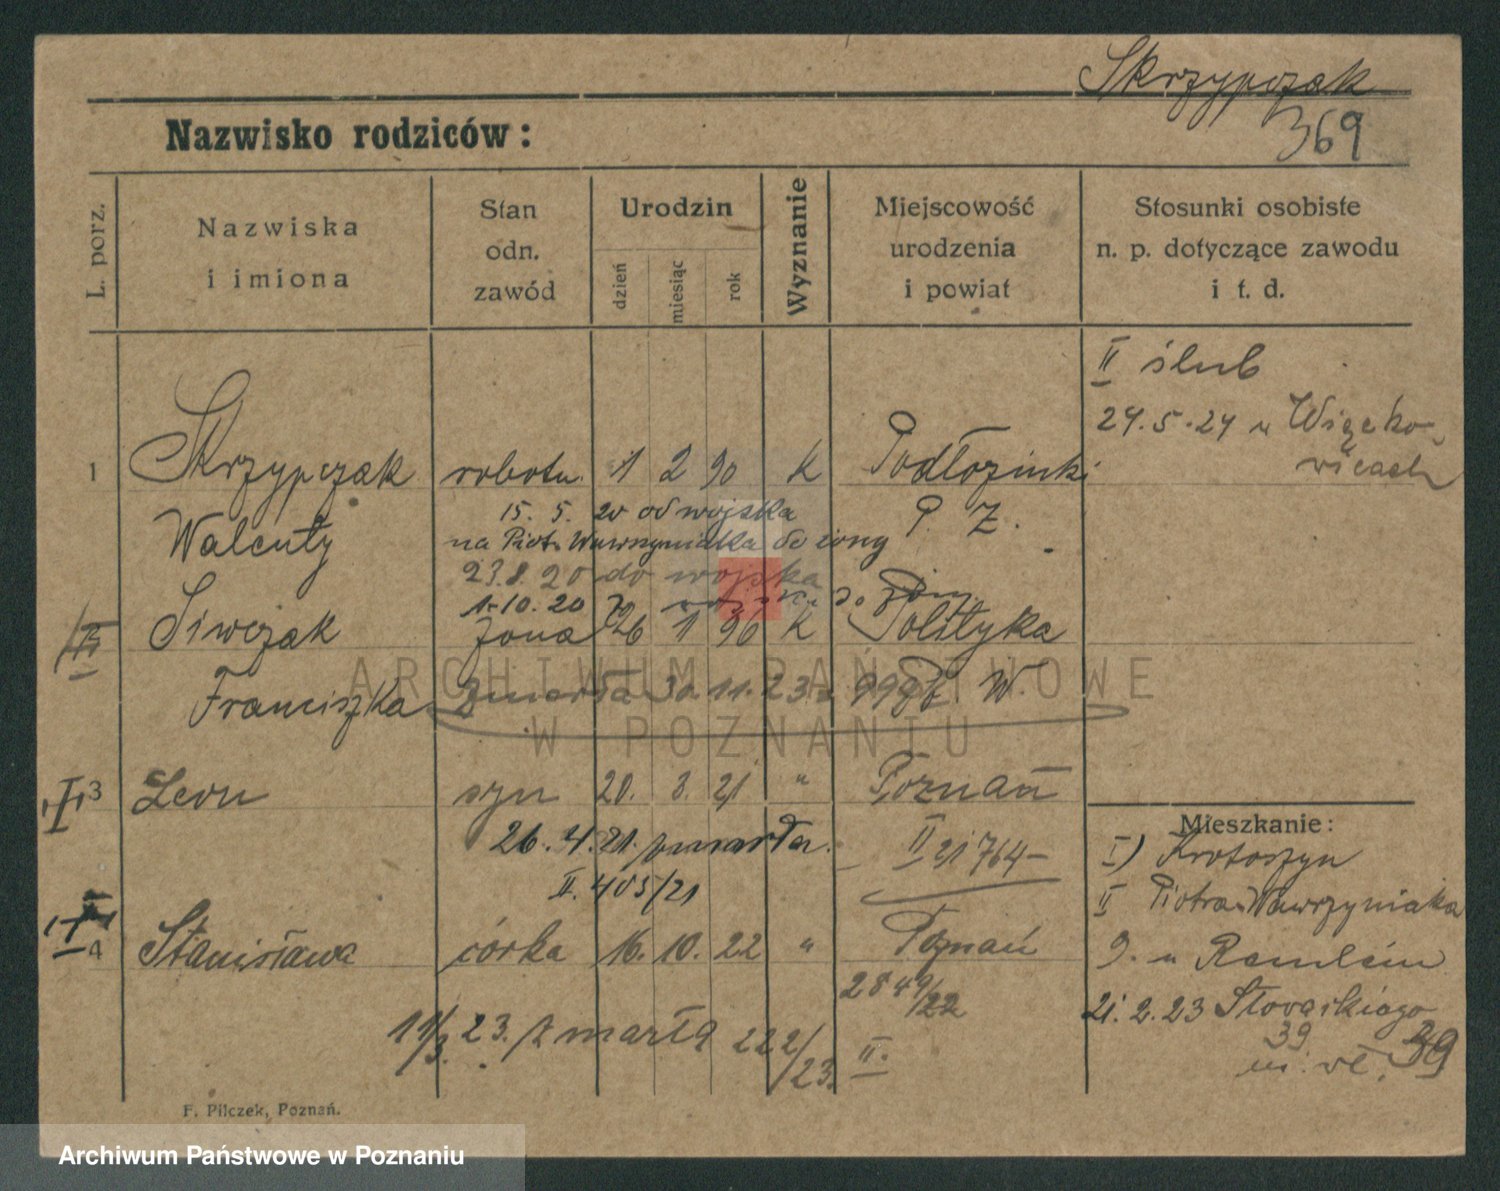 Skrzypczak
369
Nazwisko rodziców:
L. porz.
Nazwiska
i imiona
Stan
odn.
zawód
Urodzin
dzień
miesiąc
rok
Wyznanie
Miejscowość
urodzenia
i powiat
Stosunki osobiste
n. p. dotyczące zawodu
i t. d.
II ślub
24.5.24 w Więcko-
wicach
1 Skrzypczak robotn. 1 2 90 K Podłozinki
Walenty
P. Z.
15. 5. 20 od wojska
na Piotr. Wawrzyniaka do żony
23.8.20 do wojska
1-10.20 z
Siwczak żona 26 1 96 K Polityka
Franciszka zmarła 30.11.23 W.
ARCHIWUM PAŃSTWOWE
W POZNANIU
3 Leon syn 20. 3. 21 " Poznań
26.4.21. zmarła.
II 21 764
II. 405/21
4 Stanisława córka 16. 10. 22 " Poznań
2849/22
11/3. 23. zmarła 222/23. II.
Mieszkanie:
I) Krotoszyn
II Piotra Wawrzyniaka
9. u Remlein
21. 2. 23 Słowackiego
39
39
F. Pilczek, Poznań.
Archiwum Państwowe w Poznaniu